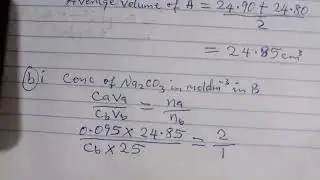 Average volume of A = 24.90 + 24.80
2
= 24.85cm³
(b)i Conc of Na₂CO₃ in moldm⁻³ in B
CaVa = na
CbVb nb
0.095 × 24.85 = 2
Cb × 25 1